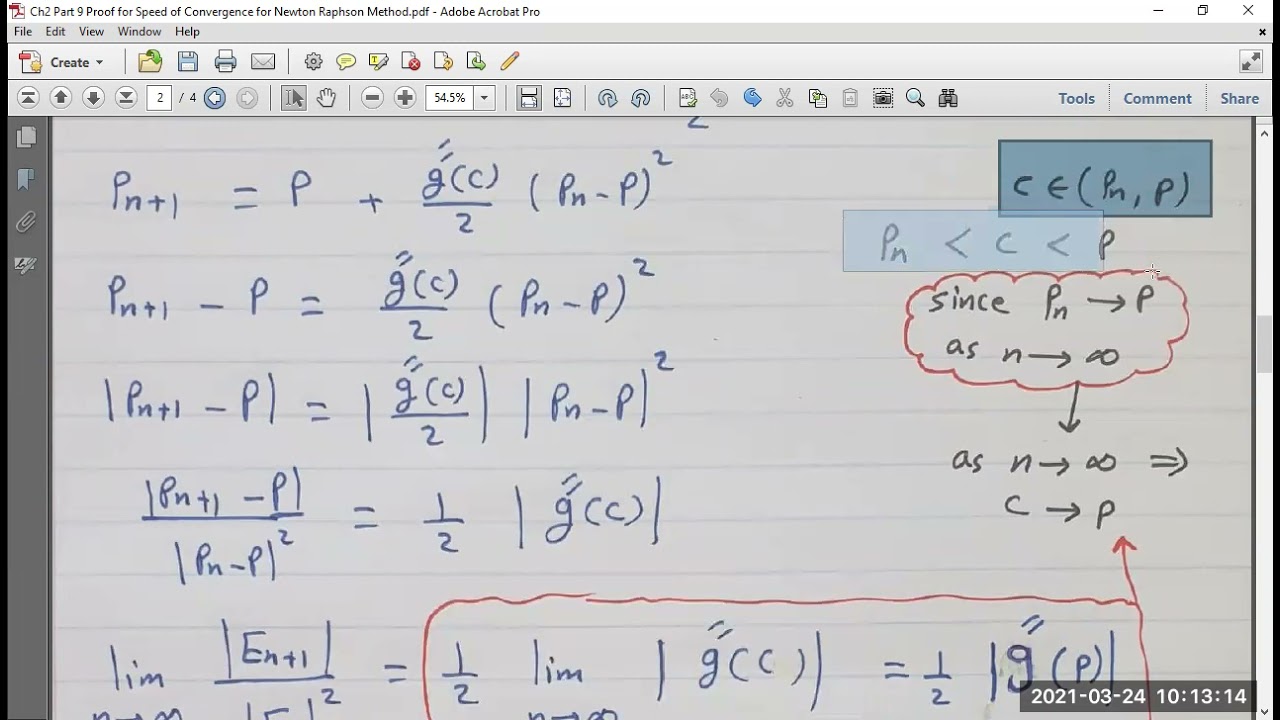 Ch2 Part 9 Proof for Speed of Convergence for Newton Raphson Method.pdf - Adobe Acrobat Pro
File Edit View Window Help
Create
2 / 4 54.5% Tools Comment Share
Pn+1 = P + g''(c)/2 (Pn-P)²
c ∈ (Pn, P)
Pn < c < P
Pn+1 - P = g''(c)/2 (Pn-P)²
since Pn → P
as n → ∞
|Pn+1 - P| = |g''(c)/2| |Pn-P|²
as n → ∞ ⇒
c → P
|Pn+1 - P|/|Pn-P|² = 1/2 |g''(c)|
lim n→∞ |En+1|/|En|² = 1/2 lim n→∞ |g''(c)| = 1/2 |g''(P)|
2021-03-24 10:13:14